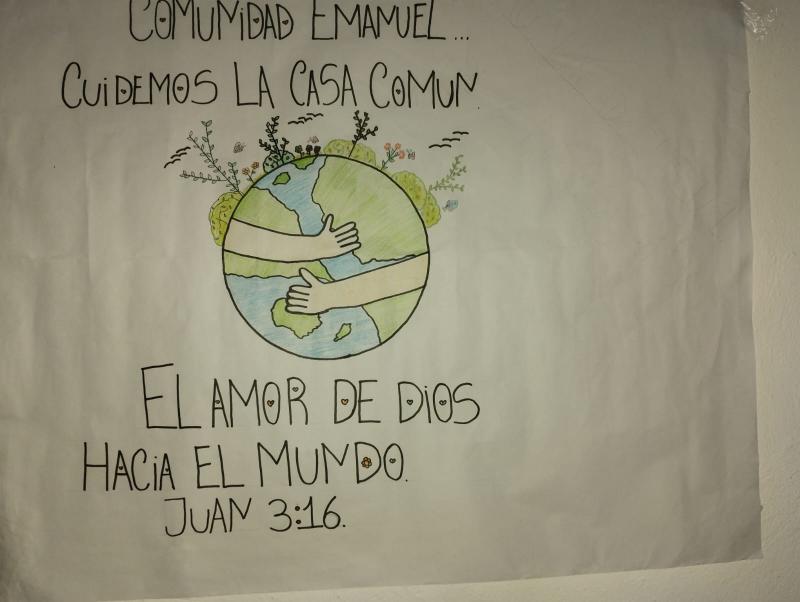 COMUNIDAD EMANUEL...
CUiDEMOS LA CASA COMUN.
EL AMOR DE DiOS
HACiA EL MUNDO.
JUAN 3:16.